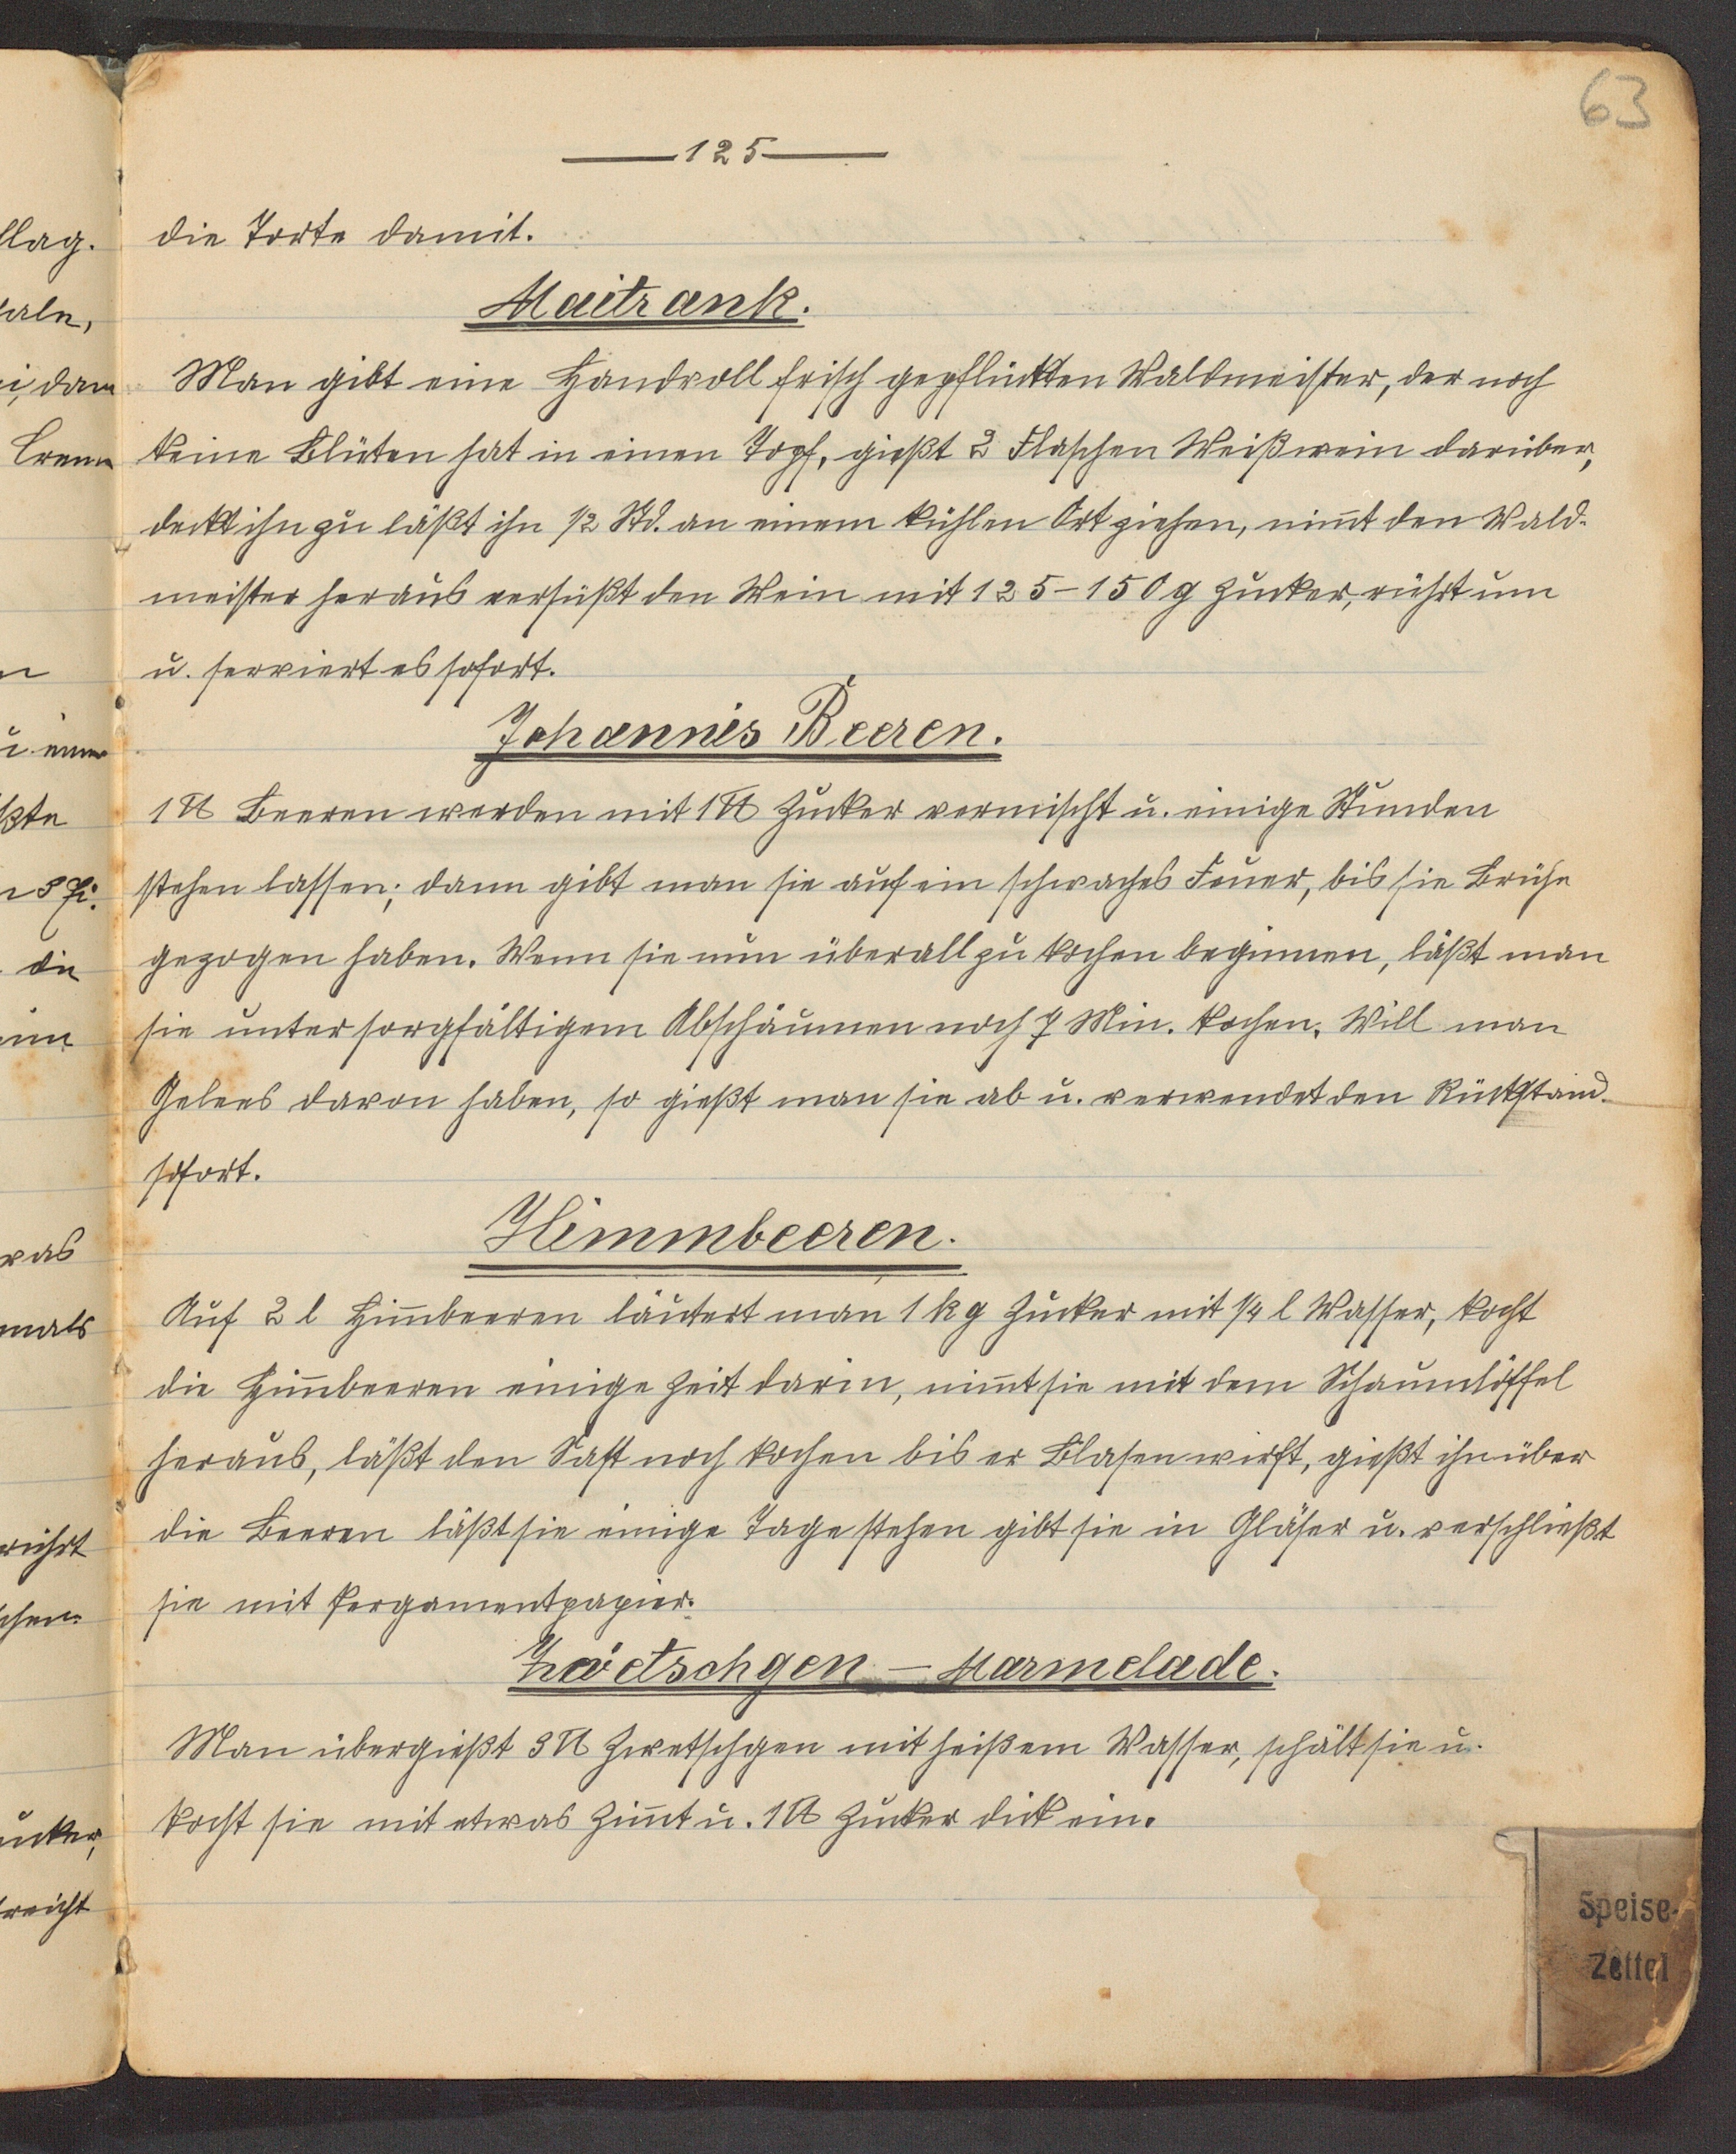 63
125
die Torte damit.
Maitrank.
Man gibt eine Handvoll frisch gepflückten Waldmeister, der noch
keine Blüten hat in einen Topf, gießt 2 Flaschen Weißwein darüber,
deckt ihn zu läßt ihn 1/2 Std. an einem kühlen Ort ziehen, nim̄t den Wald-
meister heraus versüßt den Wein mit 125-150 g Zucker, rührt um
u. serviert es sofort.
Johannis Beeren.
1 ℔ Beeren werden mit 1 ℔ Zucker vermischt u. einige Stunden
stehen lassen; dann gibt man sie auf ein schwaches Feuer, bis sie Brühe
gezogen haben. Wenn sie nun überall zu kochen beginnen, läßt man
sie unter sorgfältigem Abschäumen noch 7 Min. kochen. Will man
Gelees davon haben, so gießt man sie ab u. verwendet den Rückstand
sofort.
Himmbeeren.
Auf 2 l Him̄beeren läutert man 1 kg Zucker mit 1/4 l Wasser, kocht
die Him̄beeren einige Zeit darin, nim̄t sie mit dem Schaumlöffel
heraus, läßt den Saft noch kochen bis er Blasen wirft, gießt ihn über
die Beeren läßt sie einige Tage stehen gibt sie in Gläser u. verschließt
sie mit Pergamentpapier.
Zwetschgen - Marmelade.
Man übergießt 3 ℔ Zwetschgen mit heißem Wasser, schält sie u.
kocht sie mit etwas Zim̄t u. 1 ℔ Zucker dick ein.
Speise-
Zettel